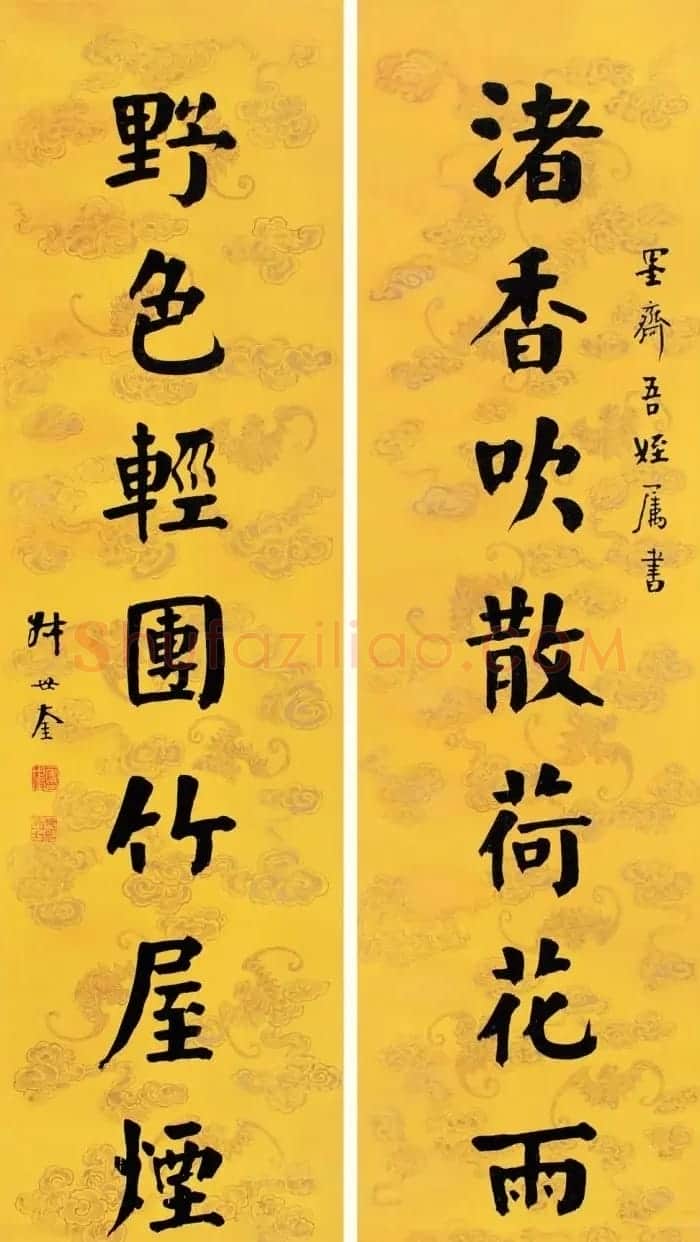 墨齋吾姪属書
渚香吹散荷花雨
野色輕團竹屋煙
世奎
Shufaziliao.COM